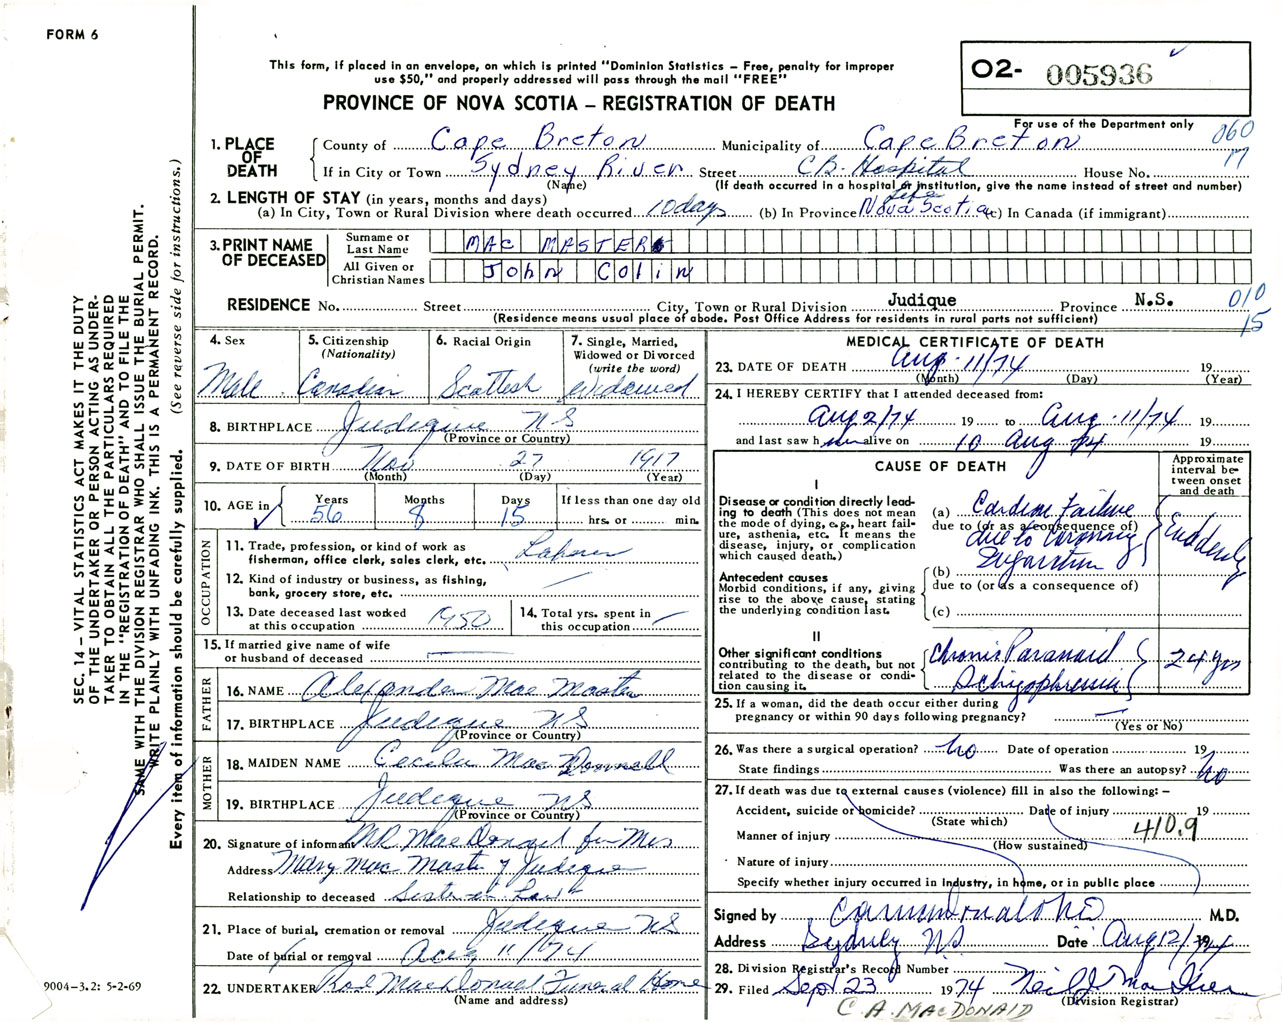 FORM 6
This form, if placed in an envelope, on which is printed "Dominion Statistics – Free, penalty for improper
use $50," and properly addressed will pass through the mail "FREE"
PROVINCE OF NOVA SCOTIA – REGISTRATION OF DEATH
02- 005936
For use of the Department only
060
17
1. PLACE OF DEATH
County of Cape Breton Municipality of Cape Breton
If in City or Town Sydney River Street C B. Hospital House No.
(Name) (If death occurred in a hospital or institution, give the name instead of street and number)
2. LENGTH OF STAY (in years, months and days)
life
(a) In City, Town or Rural Division where death occurred 10 days (b) In Province Nova Scotia (c) In Canada (if immigrant)
3. PRINT NAME OF DECEASED
Surname or Last Name MAC MASTER
All Given or Christian Names John Colin
RESIDENCE No. Street City, Town or Rural Division Judique Province N.S.
010
15
(Residence means usual place of abode. Post Office Address for residents in rural parts not sufficient)
4. Sex Male
5. Citizenship (Nationality) Canadian
6. Racial Origin Scottish
7. Single, Married, Widowed or Divorced (write the word) Widowed
8. BIRTHPLACE Judique NS
(Province or Country)
9. DATE OF BIRTH Nov 27 1917
(Month) (Day) (Year)
10. AGE in Years 56 Months 8 Days 15 If less than one day old hrs. or min.
OCCUPATION
11. Trade, profession, or kind of work as
fisherman, office clerk, sales clerk, etc. Laborer
12. Kind of industry or business, as fishing,
bank, grocery store, etc. —
13. Date deceased last worked
at this occupation 1950
14. Total yrs. spent in
this occupation —
15. If married give name of wife
or husband of deceased —
FATHER
16. NAME Alexander Mac Master
17. BIRTHPLACE Judique NS
(Province or Country)
MOTHER
18. MAIDEN NAME Cecelia Mac Donnell
19. BIRTHPLACE Judique NS
(Province or Country)
20. Signature of informant MR MacDonald for Mrs
Address Mary Mac Master Judique
Relationship to deceased Sister in Law
21. Place of burial, cremation or removal Judique NS
Date of burial or removal Aug 11/74
22. UNDERTAKER Rod MacDonald Funeral Home
(Name and address)
MEDICAL CERTIFICATE OF DEATH
23. DATE OF DEATH Aug. 11/74 19
(Month) (Day) (Year)
24. I HEREBY CERTIFY that I attended deceased from:
Aug 2/74 19 to Aug. 11/74 19
and last saw him alive on 10 Aug 74 19
CAUSE OF DEATH
Approximate interval between onset and death
I
Disease or condition directly leading
to death (This does not mean
the mode of dying, e.g., heart failure,
asthenia, etc. It means the
disease, injury, or complication
which caused death.)
(a) Cardiac Failure
due to (or as a consequence of)
due to coronary
Suddenly
Antecedent causes
Morbid conditions, if any, giving
rise to the above cause, stating
the underlying condition last.
(b)
due to (or as a consequence of)
(c)
II
Other significant conditions
contributing to the death, but not
related to the disease or condition
causing it.
Chronic Paranoid
Schizophrenia
24 yrs
25. If a woman, did the death occur either during
pregnancy or within 90 days following pregnancy? —
(Yes or No)
26. Was there a surgical operation? no Date of operation 19
State findings Was there an autopsy? No
27. If death was due to external causes (violence) fill in also the following: –
Accident, suicide or homicide? Date of injury 19
(State which)
410.9
Manner of injury
(How sustained)
Nature of injury
Specify whether injury occurred in industry, in home, or in public place
Signed by M.D.
Address Sydney NS Date Aug 12/74
28. Division Registrar's Record Number
29. Filed Sept 23 1974 Neil J
(Division Registrar)
C. A. MACDONALD
SEC. 14 – VITAL STATISTICS ACT MAKES IT THE DUTY
OF THE UNDERTAKER OR PERSON ACTING AS UNDERTAKER
TO OBTAIN ALL THE PARTICULARS REQUIRED
IN THE "REGISTRATION OF DEATH" AND TO FILE THE
SAME WITH THE DIVISION REGISTRAR WHO SHALL ISSUE THE BURIAL PERMIT.
WRITE PLAINLY WITH UNFADING INK. THIS IS A PERMANENT RECORD.
Every item of information should be carefully supplied. (See reverse side for instructions.)
9004–3.2: 5-2-69